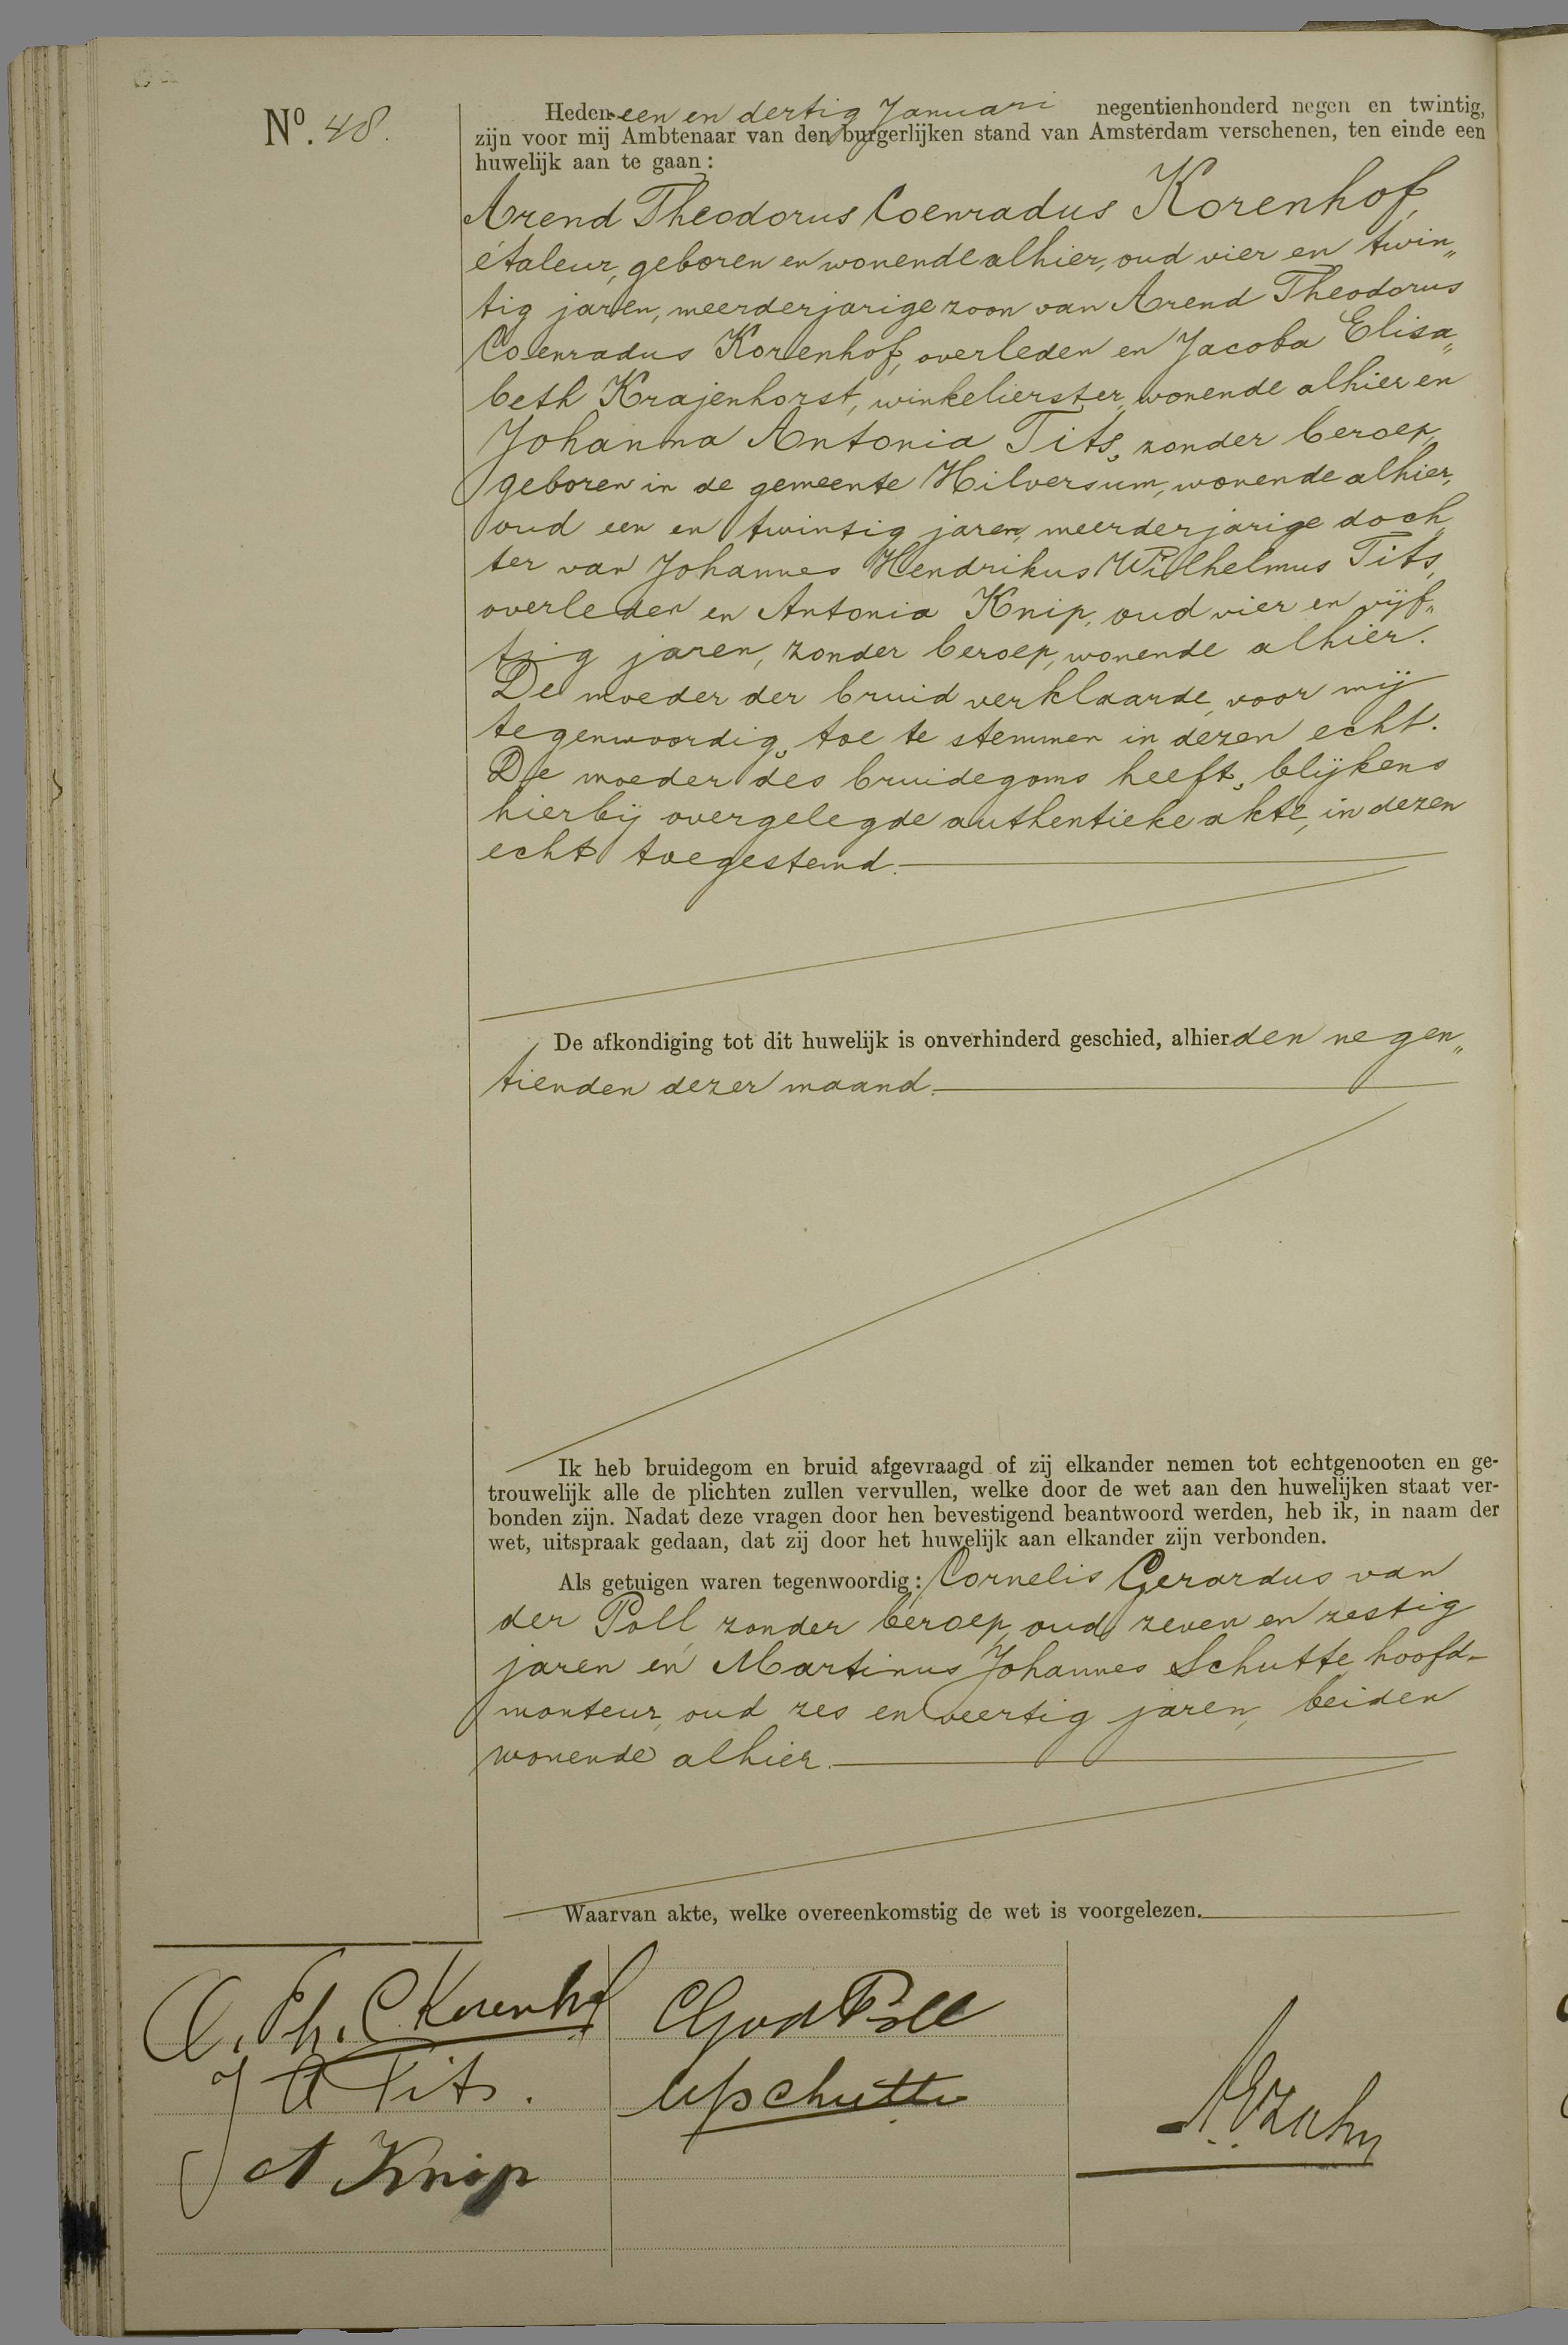 Nº. 48.
Heden een en dertig Januari negentienhonderd negen en twintig,
zijn voor mij Ambtenaar van den burgerlijken stand van Amsterdam verschenen, ten einde een
huwelijk aan te gaan:
Arend Theodorus Coenradus Korenhof,
étaleur, geboren en wonende alhier, oud vier en twin„
tig jaren, meerderjarige zoon van Arend Theodorus
Coenradus Korenhof, overleden en Jacoba Elisa„
beth Krajenhorst, winkelierster, wonende alhier en
Johanna Antonia Tits, zonder beroep,
geboren in de gemeente Hilversum, wonende alhier,
oud een en twintig jaren, meerderjarige doch„
ter van Johannes Hendrikus Wilhelmus Tits,
overleden en Antonia Knip, oud vier en vijf„
tig jaren, zonder beroep, wonende alhier.
De moeder der bruid verklaarde, voor mij
tegenwoordig, toe te stemmen in dezen echt.
De moeder des bruidegoms heeft, blijkens
hierbij overgelegde authentieke akte, in dezen
echt toegestemd.
De afkondiging tot dit huwelijk is onverhinderd geschied, alhier den negen„
tienden dezer maand.
Ik heb bruidegom en bruid afgevraagd of zij elkander nemen tot echtgenooten en ge-
trouwelijk alle de plichten zullen vervullen, welke door de wet aan den huwelijken staat ver-
bonden zijn. Nadat deze vragen door hen bevestigend beantwoord werden, heb ik, in naam der
wet, uitspraak gedaan, dat zij door het huwelijk aan elkander zijn verbonden.
Als getuigen waren tegenwoordig: Cornelis Gerardus van
der Poll zonder beroep, oud zeven en zestig
jaren en Martinus Johannes Schutte, hoofd-
monteur, oud zes en veertig jaren, beiden
wonende alhier.
Waarvan akte, welke overeenkomstig de wet is voorgelezen.
A. Th. C. Korenhof
CGvdPoll
J A Tits.
Schutte
A Knip